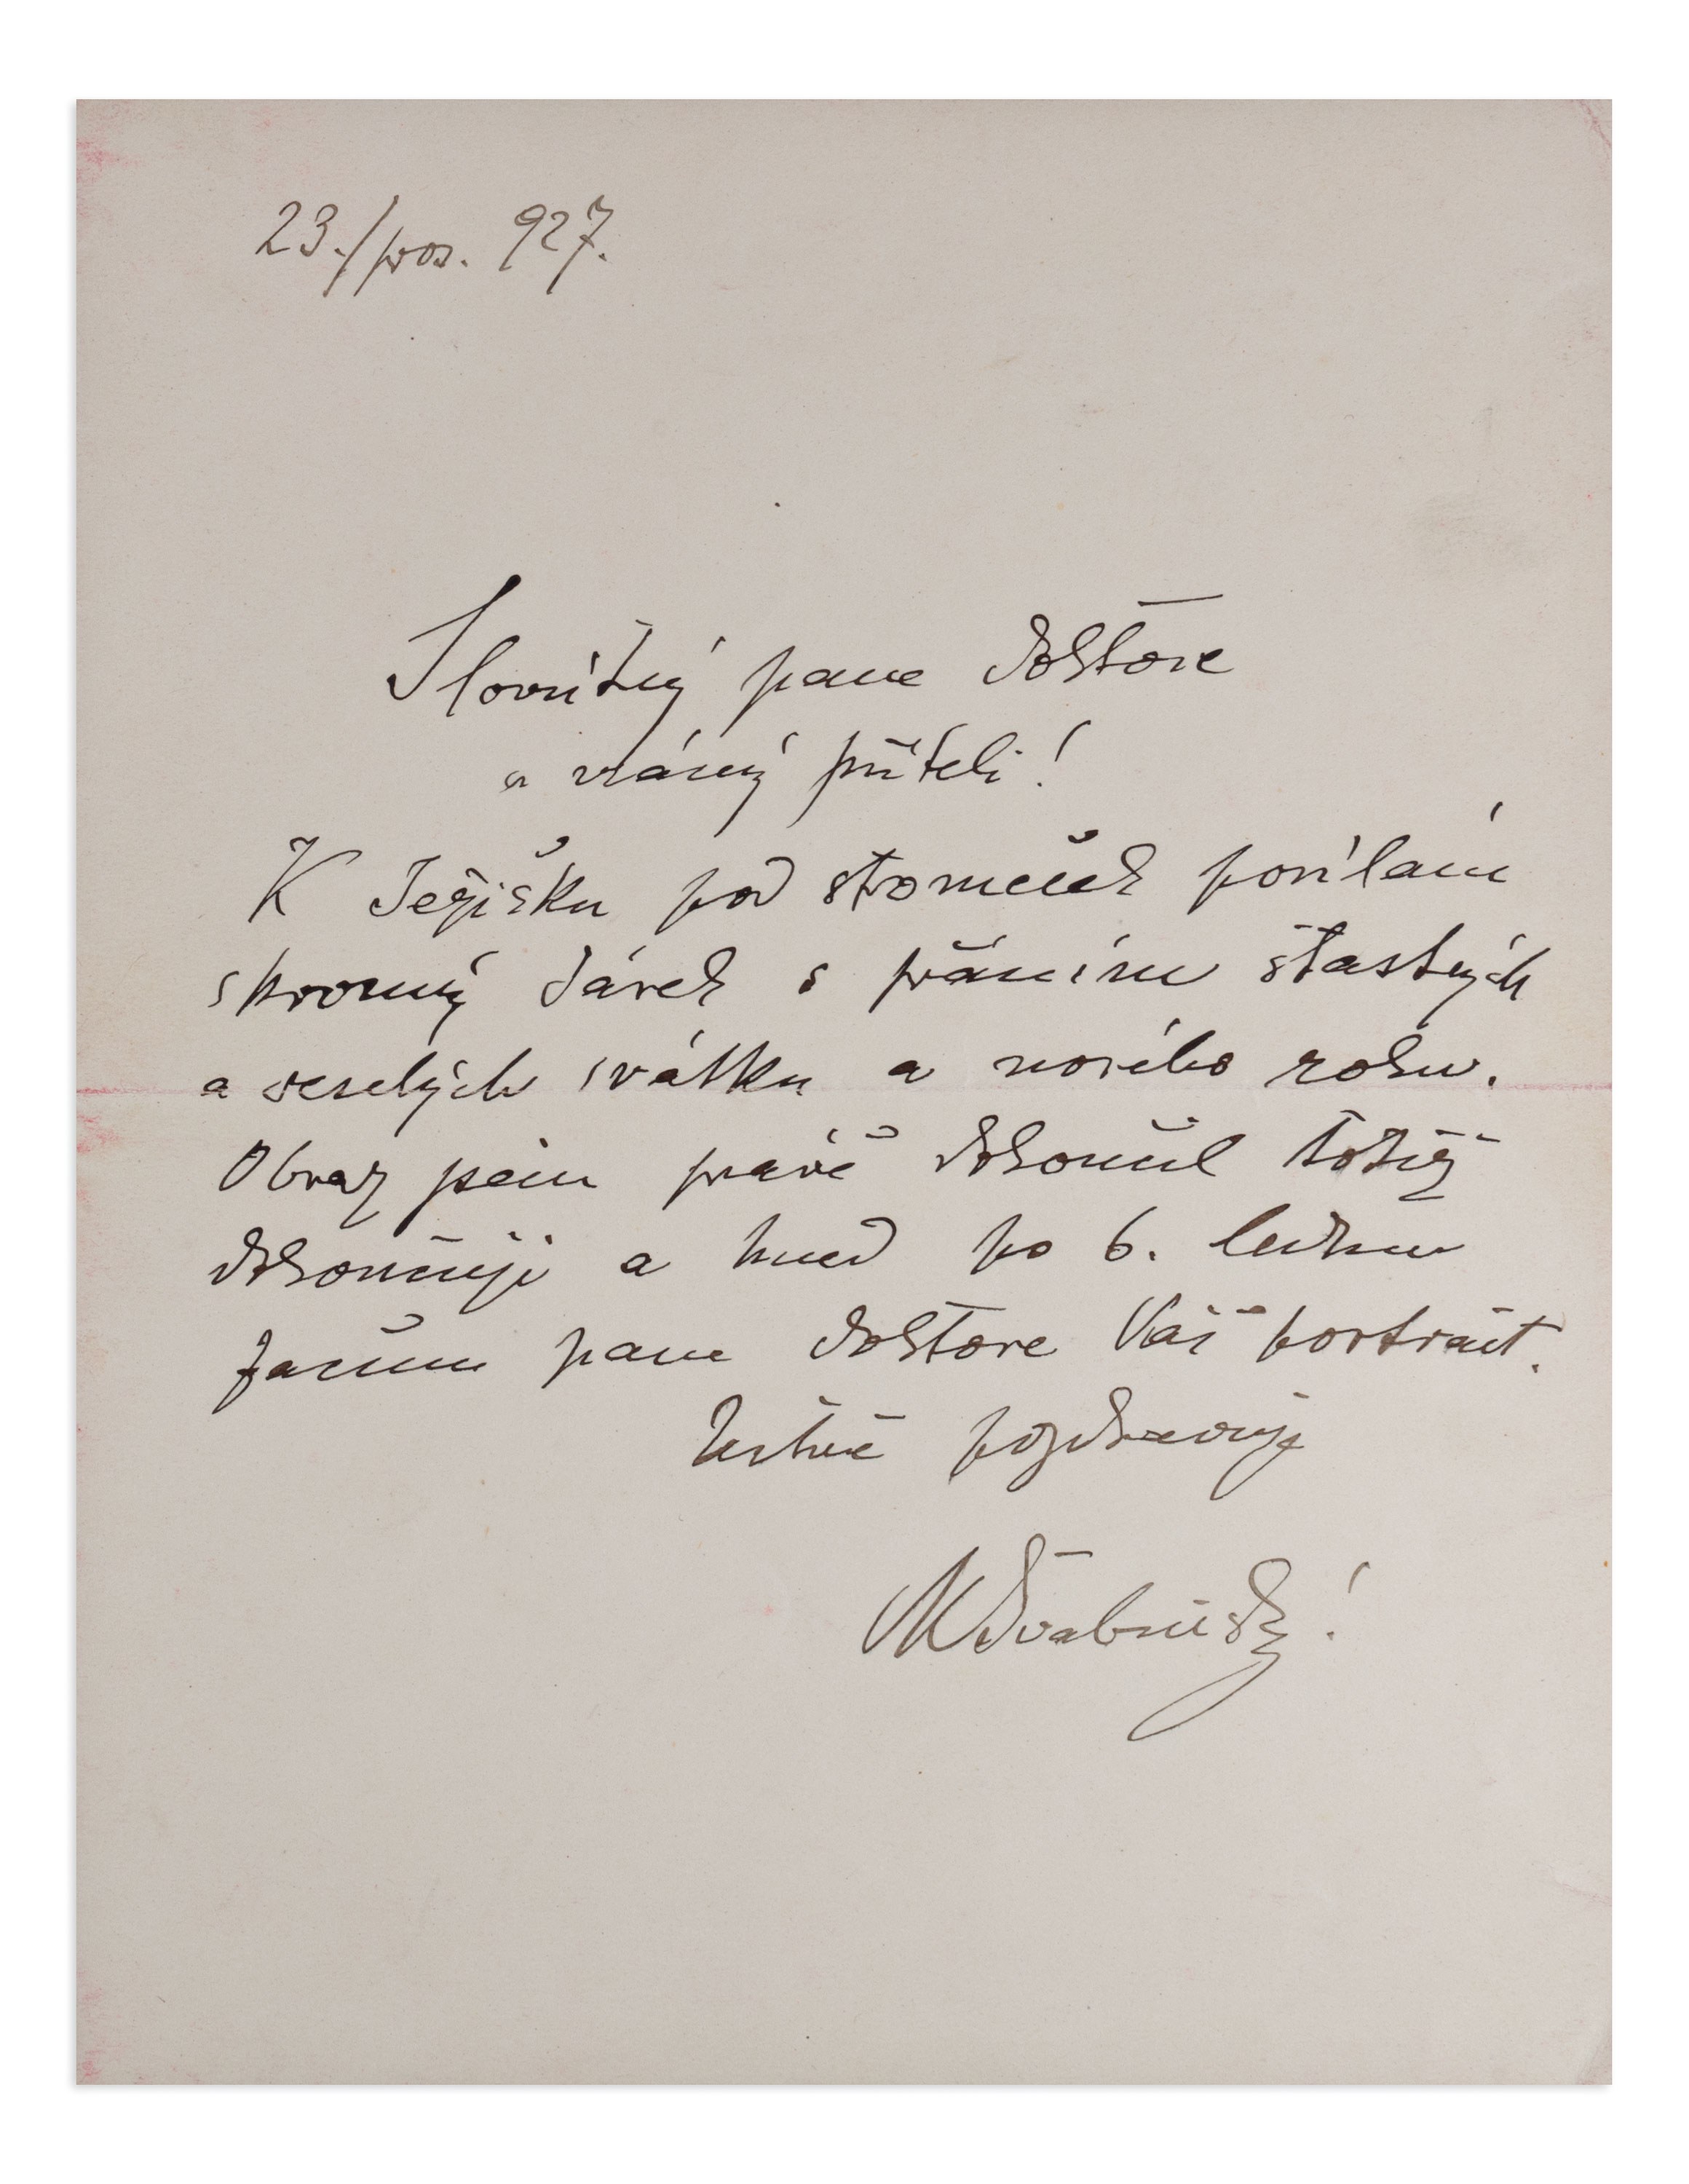 23./pros. 927.
Slovutný pane doktore
a vzácný příteli!
K Ježíšku pod stromeček posílám
skromný dárek s přáním šťastných
a veselých svátku a nového roku.
Obraz právě dokončil totiž
dokončuji a hned po 6. lednu
začnu pane doktore Váš portrait.
Uctivě pozdravuje
MŠvabinský!